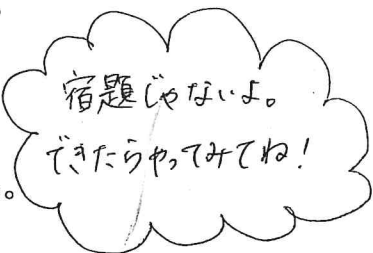 宿題じゃないよ。
できたらやってみてね!